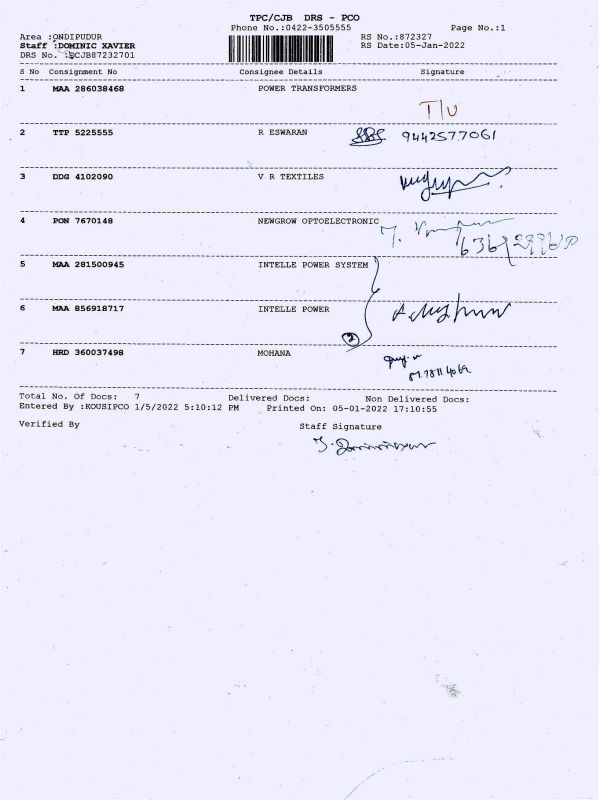 TPC/CJB DRS - PCO
Phone No.:0422-3505555 Page No.:1
Area :ONDIPUDUR RS No.:872327
Staff :DOMINIC XAVIER RS Date:05-Jan-2022
DRS No. :PCJB87232701
S No Consignment No Consignee Details Signature
1 MAA 286038468 POWER TRANSFORMERS
T/U
2 TTP 5225555 R ESWARAN 9442577061
3 DDG 4102090 V R TEXTILES
4 PON 7670148 NEWGROW OPTOELECTRONIC
5 MAA 281500945 INTELLE POWER SYSTEM
6 MAA 856918717 INTELLE POWER
2
7 HRD 360037498 MOHANA
Total No. Of Docs: 7 Delivered Docs: Non Delivered Docs:
Entered By :KOUSIPCO 1/5/2022 5:10:12 PM Printed On: 05-01-2022 17:10:55
Verified By Staff Signature